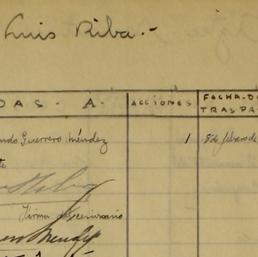 Luis Riba.-
DAS. A. ACCIONES FECHA-D
TRASPA
ndo Guerrero Méndez 1 8 de febrero de
te
Firma del cesionario
Mendez